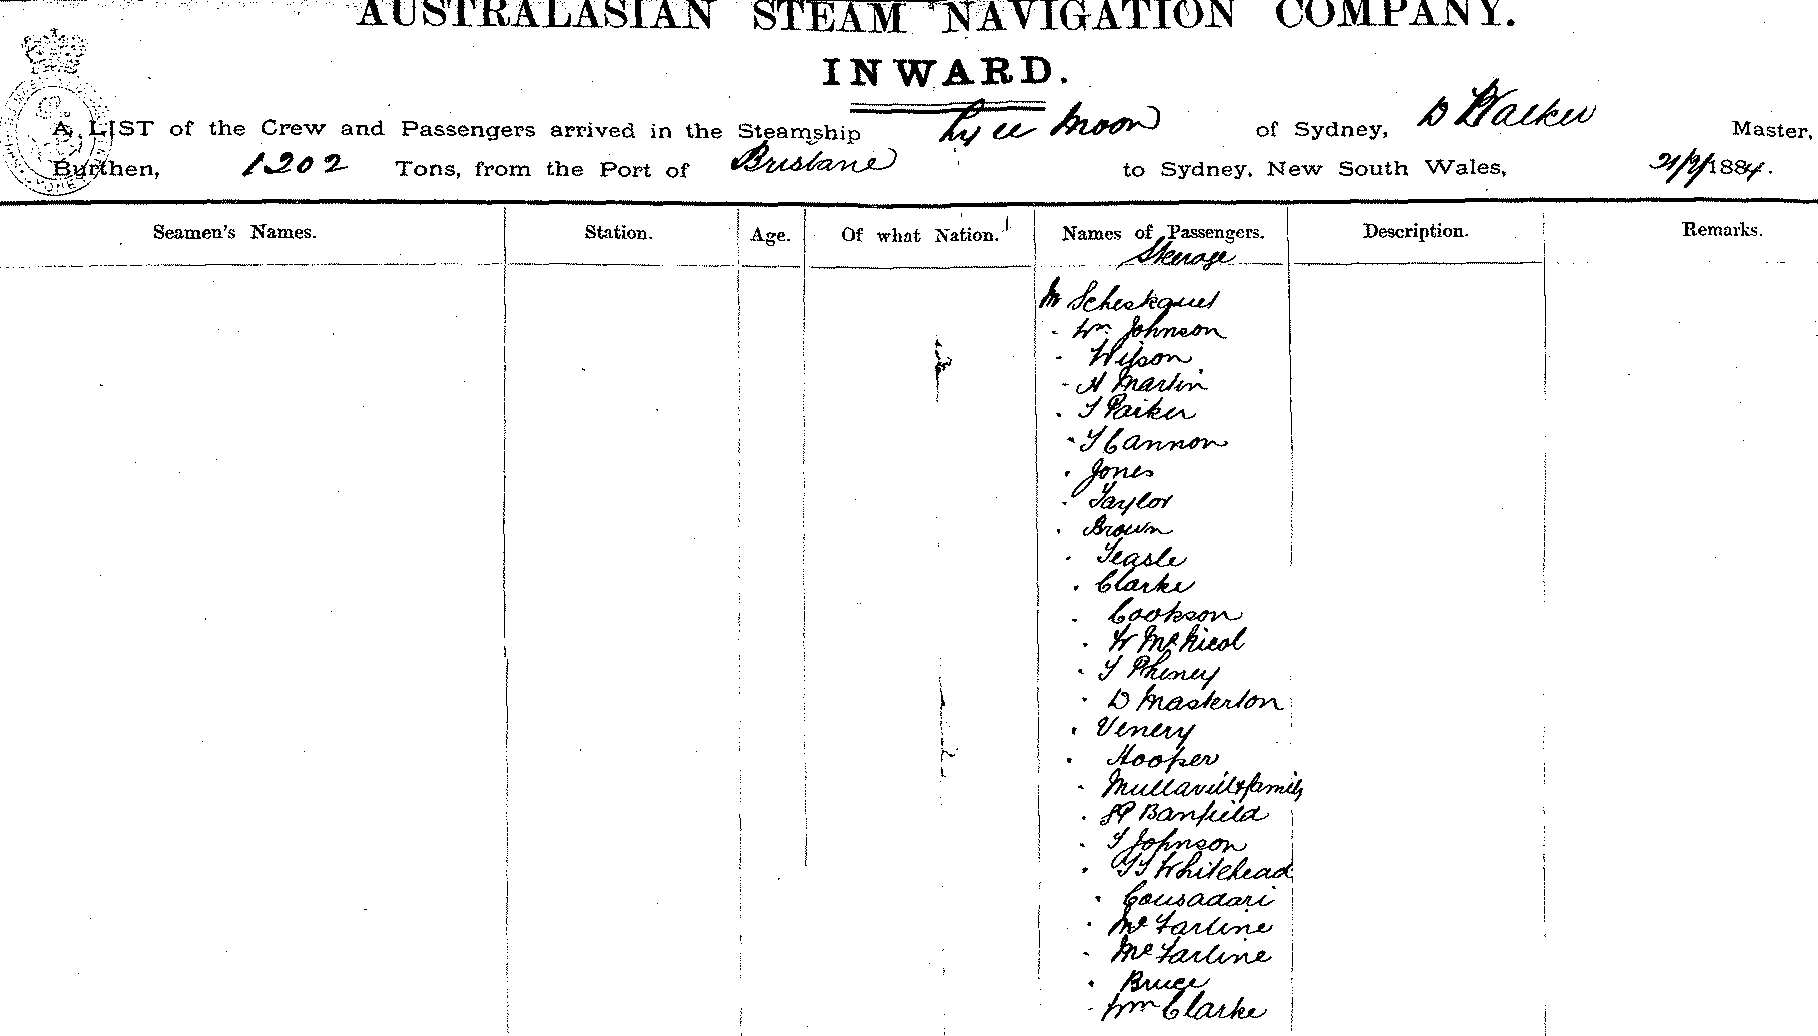 AUSTRALASIAN STEAM NAVIGATION COMPANY.
INWARD.
A LIST of the Crew and Passengers arrived in the Steamship Ly ee Moon of Sydney, D Walker Master,
Burthen, 1202 Tons, from the Port of Brisbane to Sydney, New South Wales, 21/9/1884.
Seamen's Names. Station. Age. Of what Nation. Names of Passengers. Description. Remarks.
Steerage
Mr
· Wm Johnson
· Wilson
- A Martin
· T Parker
· T Cannon
· Jones
· Taylor
· Brown
· Teasle
· Clarke
· Cookson
· W McNicol
· T Pheney
· D Masterton
· Venery
· Hooper
- & family
· Banfield
· T Johnson
· Whitehead
·
· McFarline
- McFarline
· Bruce
- Clarke